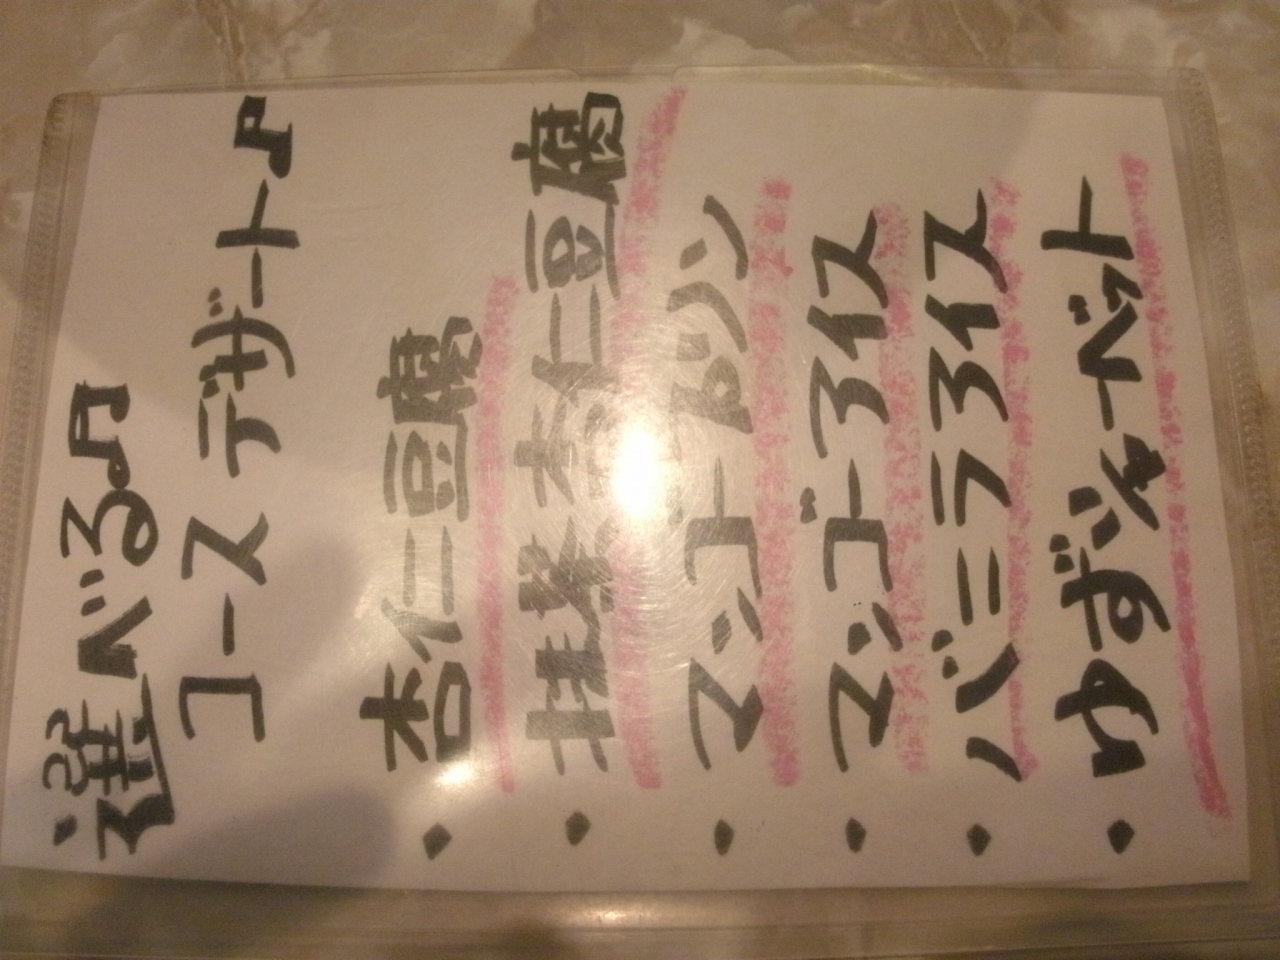 選べる♫
コース デザート♪
・杏仁豆腐
・抹茶杏仁豆腐
・マンゴープリン
・マンゴーアイス
・バニラアイス
・ゆずシャーベット